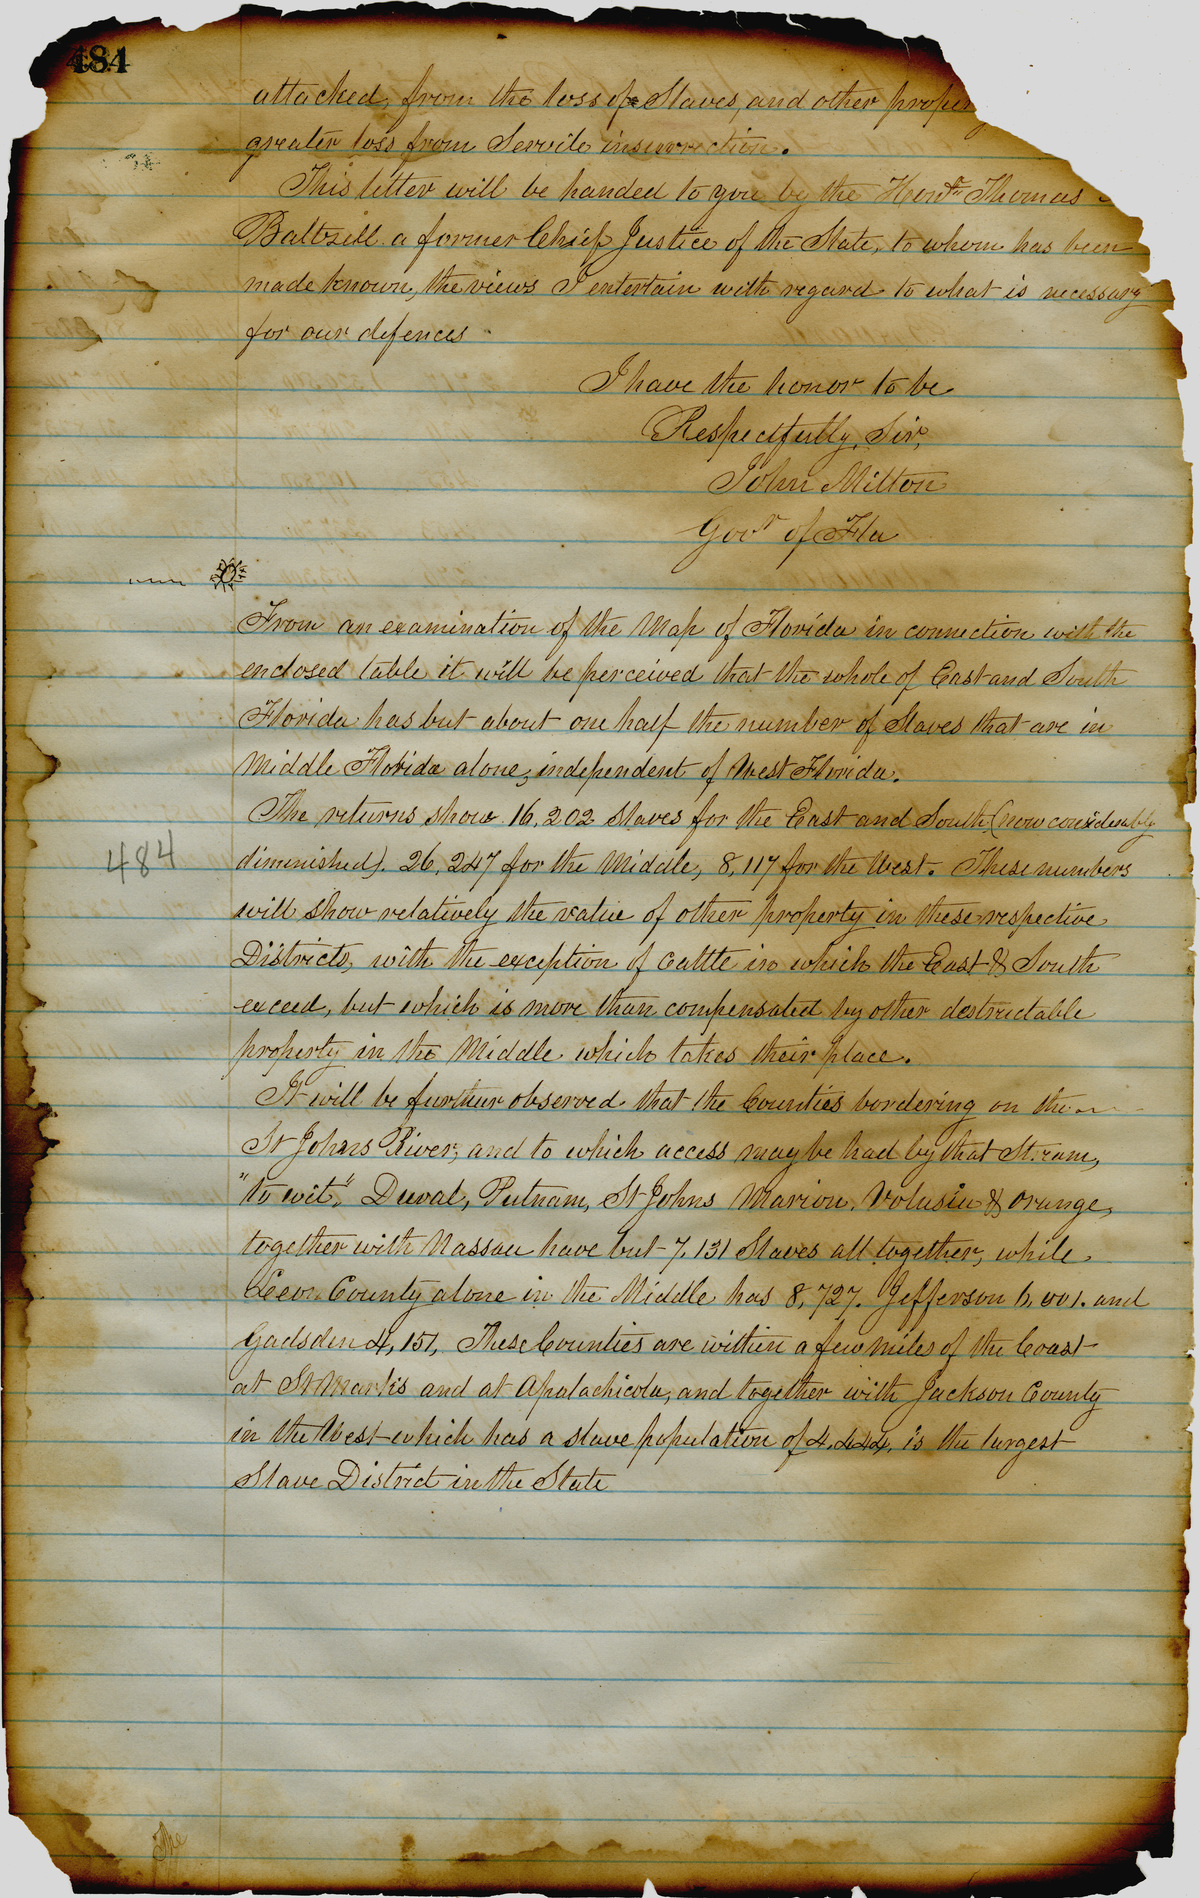 484
attached, from the loss of Slaves, and other proper
greater loss from Servile insurrection.
This letter will be handed to you by the Honr Thomas
Baltzell a former Chief Justice of the State, to whom has been
made known, the views I entertain with regard to what is necessary
for our defences
I have the honor to be
Respectfully, Sir,
John Milton
Govr of Fla
From an examination of the Map of Florida in connection with the
enclosed table it will be perceived that the whole of East and South
Florida has but about one half the number of Slaves that are in
Middle Florida alone, independent of West Florida.
The returns show 16,202 Slaves for the East and South (now considerably
diminished). 26,247 for the Middle, 8,117 for the West. These numbers
484
will show relatively the value of other property in these respective
Districts, with the exception of Cattle in which the East & South
exceed, but which is more than compensated by other destructable
property in the Middle which takes their place.
It will be further observed that the Counties bordering on the
St Johns River, and to which access may be had by that Stream,
"to wit", Duval, Putnam, St Johns Marion, Volusia & Orange,
together with Nassau have but 7,131 Slaves all together, while
Leon County alone in the Middle has 8,727. Jefferson and
Gadsden 4,151, These Counties are within a few miles of the Coast
at St Marks and at Apalachicola, and together with Jackson County
in the West which has a slave population of 4,444, is the largest
Slave District in the State